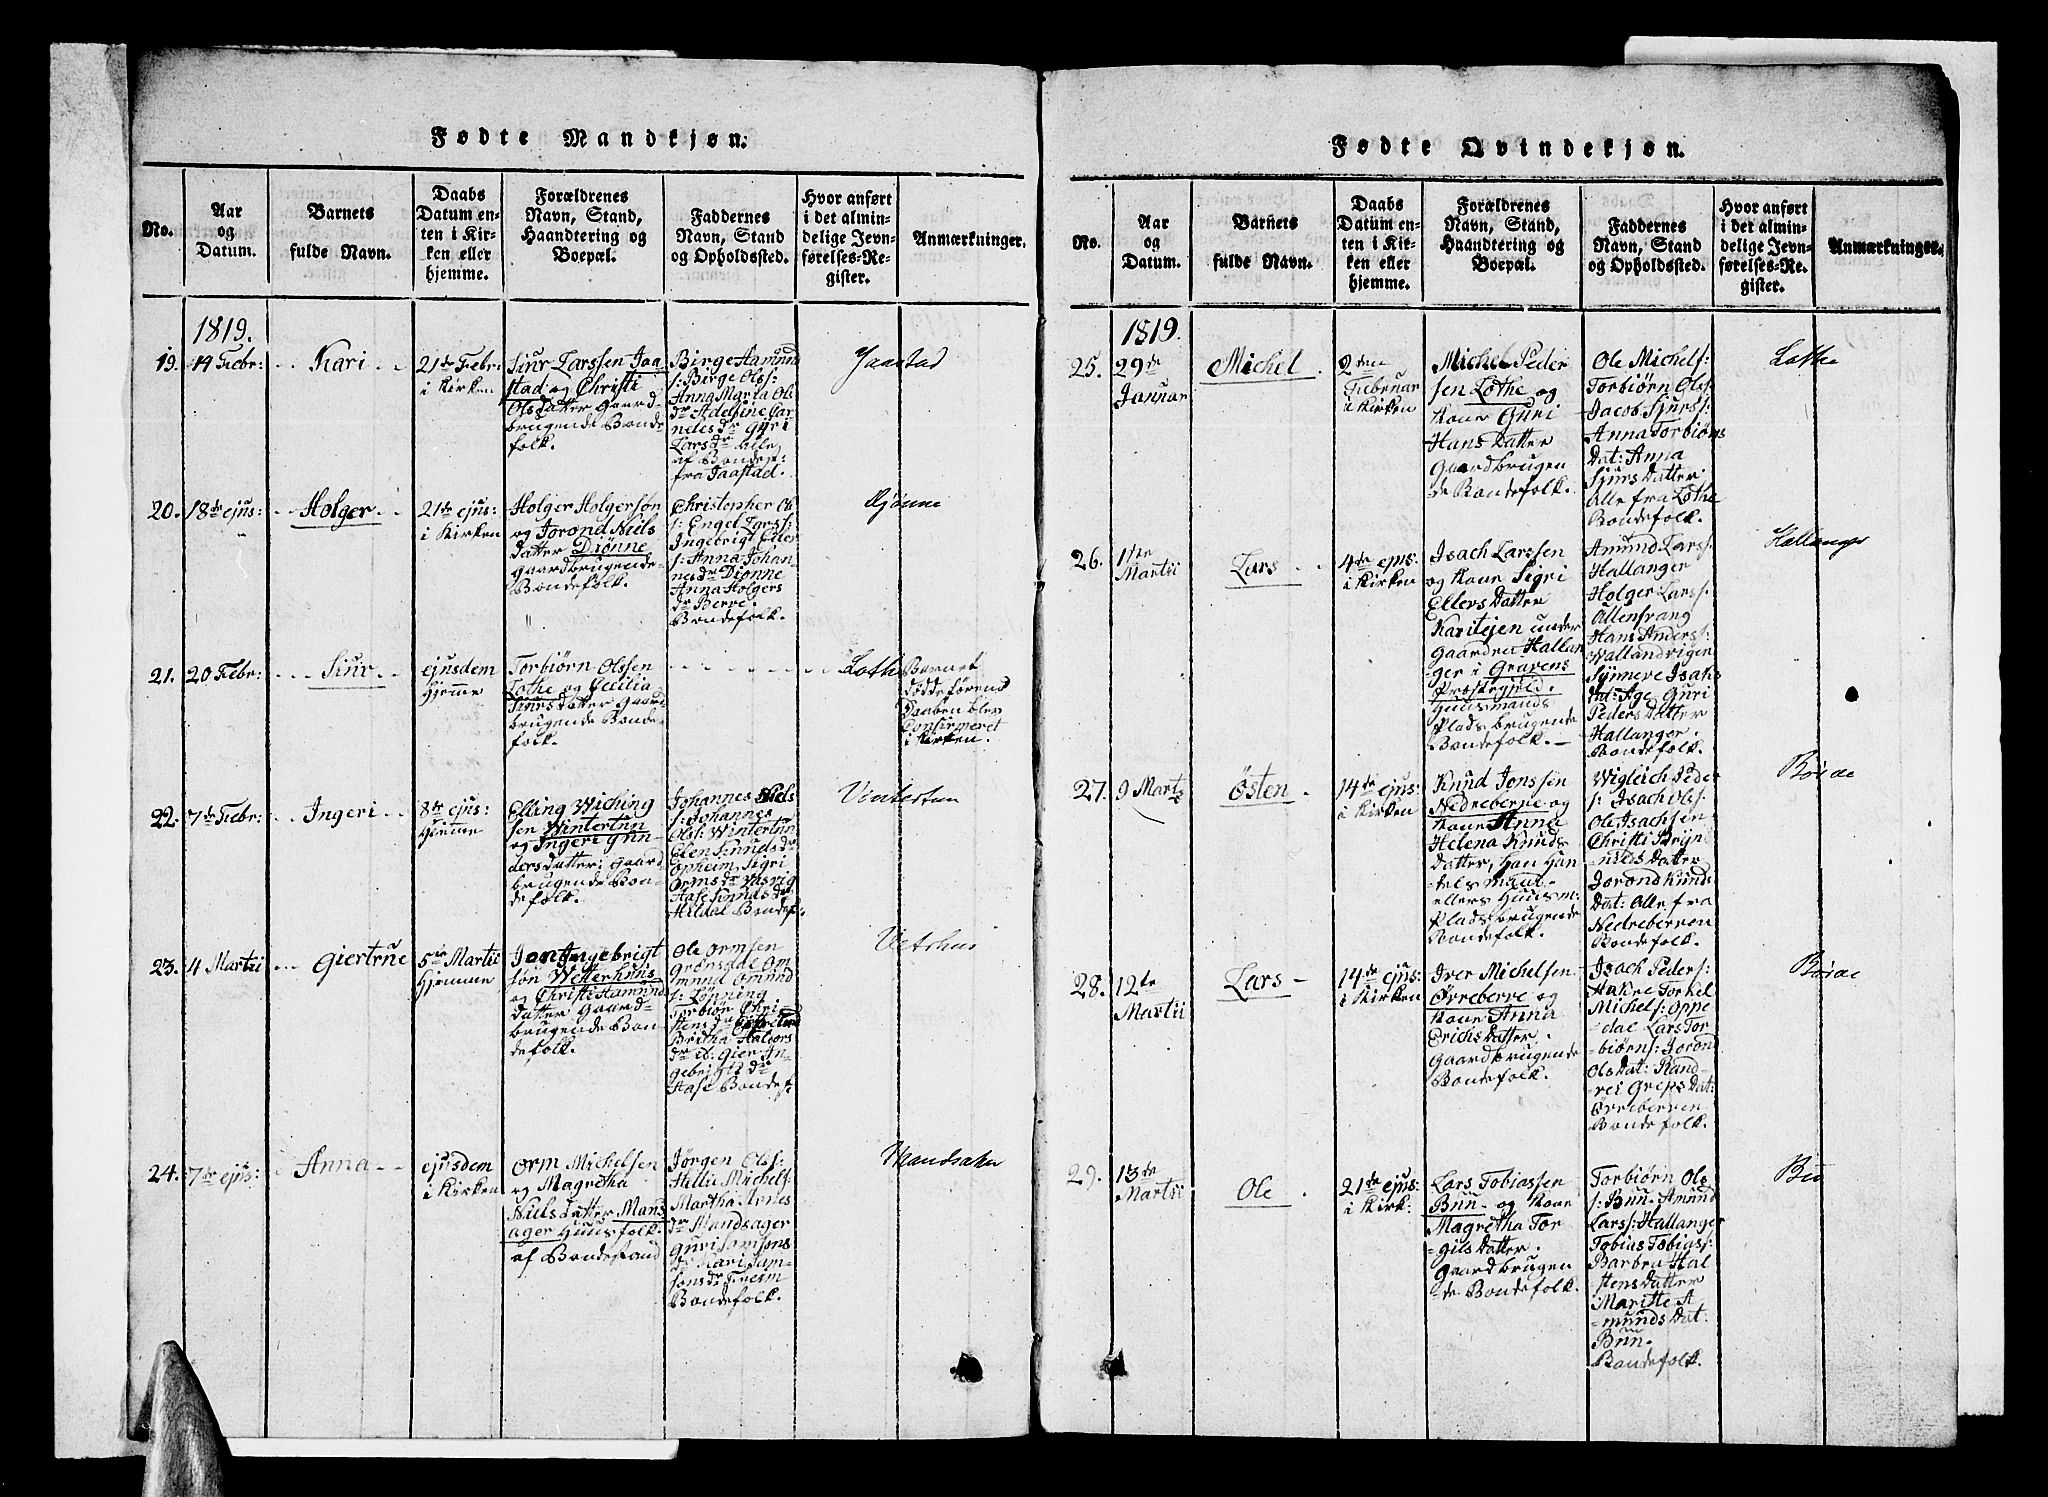 Fødte Mandkjøn.
No.
Aar
og
Datum.
Barnets
fulde Navn.
Daabs
Datum en-
ten i Kir-
ken eller
hjemme.
Forældrenes
Navn, Stand,
Haandtering og
Boepæl.
Faddernes
Navn, Stand
og Opholdssted.
Hvor anført
i det almin-
delige Jevn-
førelses-Re-
gister.
Anmærkninger.
1819.
19.
14 Febr:
Kari
21de Febr:
i Kirken
Siur Larssen Jaa
stad og Christi
Olsdatter Gaard-
brugende Bonde
folk.
Birge Aamund
s: Birge Olss:
Anna Maria Ols
dr Adelsine Cor
nelisdr Gyri
Larsdr alle
af Bondest:
fra Jaastad.
Jaastad
20.
18de ejus:
Holger
21de ejus:
i Kirken
Holger Holgersøn
og Jorond Niels
datter Diønne
gaardbrugende
Bondefolk.
Christopher Ols
s: Engel Larss:
Ingebrigt Eller
s: Anna Johan
nesdr Diønne
Anna Holgers
dr Berre.
Bondefolk.
Djønne
21.
20 Febr:
Siur
ejusdem
Hjemme
Torbiørn Olssen
Lothe og Cecilia
Siursdatter Gaard
brugende Bonde-
folk.
Lothe
Barnet
døde førend
Daaben blev
Confirmeret
i Kirken.
22.
7de Febr:
Ingeri
8de ejus:
Hjemme
Elling Wiching
sen Wintertun
og Ingeri Gun
dersdatter; Gaard
brugende Bon-
defolk.
Johannes Niels
s: Johannes
Olss: Wintertun
Elen Knudsdr
Opheim Sigri
Ormsdr
Aase Knudsdr
Hildal Bondef:
Vintertun
23.
4 Martii
Giertrue
5te Martii
Hjemme
Jon Ingebrigt
søn Wetterhuus
og Christi Aamund
datter Gaard-
brugende Bon
defolk.
Ole Ormsen
Grønsdal Om
mund Omund
s: Lønning
Torbiør Chri-
stensdr
Britha Haldors
dr ib. Gier In-
gebrigtsdr
Aase Bondef
Vetrhus
24.
7de ejus:
Anna
ejusdem
i Kirken
Orm Michelsen
og Magretha
Nielsdatter Mans
ager Huusfolk
af Bondestand
Jørgen Olss:
Helli Michels:
Martha Arnes
dr Mandsager
Guri Samsons
dr Kari Sam-
sonsdr Freim
Bondefolk.
Mandsaker
Fødte Qvindekjøn.
No.
Aar
og
Datum.
Barnets
fulde Navn.
Daabs
Datum en-
ten i Kir-
ken eller
hjemme.
Forældrenes
Navn, Stand,
Haandtering og
Boepæl.
Faddernes
Navn, Stand
og Opholdssted.
Hvor anført
i det almin-
delige Jevn-
førelses-Re-
gister.
Anmærkninger.
1819.
25.
29de
Januar
Michel
2den
Februar
i Kirken
Michel Peder
sen Lothe og
Kone Guri
Hans Datter
Gaardbrugen
de Bondefolk.
Ole Michels:
Torbiørn Olss:
Jacob Sjurss:
Anna Torbiørns
Dat: Anna
Sjurs Datter
Alle fra Lothe
Bondefolk.
Lothe
26.
1ste
Martii
Lars
4de ejus:
i Kirken
Isach Larssen
og Kone Sigri
Ellers Datter
Karitejen under
Gaarden Hallan
ger i Gravens
Præstegjeld.
Huusmands
Plads brugende
Bondefolk.
Amund Larss:
Hallanger
Holger Larss:
Ullensvang
Hans Anderss:
Wallandviger
Synneve Isaks
dat: Age Guri
Peders Datter
Hallanger.
Bondefolk.
Hallanger
27.
9 Marts
Østen
14de ejus:
i Kirken
Knud Jonssen
Nedreberre og
Kone Anna
Helena Knuds
Datter, Han Han
dels mand
ellers Huusm:
Plads brugende
Bondefolk.
Wigleich Peder
s: Isach Olss:
Ole Isachsen
Christi Bryn
nilds Datter
Jorond Knuds
Dat: Alle fra
Nedreberren
Bondefolk.
Børve
28.
12te
Martii
Lars
14de ejus:
i Kirken
Iver Michelsen
Ørreberre og
Kone Anna
Erichs Datter.
Gaardbrugende
Bondefolk.
Isach Peders:
Hakre Torkel
Michels: Oppe
dal Lars Tor
biørns: Joron
Ols Dat: Rand-
vei Greps Dat:
Ørreberren
Bondefolk.
Børve
29.
13de
Martii
Ole
21de ejus:
i Kirk:
Lars Tobiassen
Buu og Kone
Magretha Tor
gils Datter.
Gaardbrugen
de Bondefolk.
Torbiørn Ole
s: Buu. Amund
Larss: Hallanger
Tobias Tobiass:
Barbra Hal
stens Datter
Maritte A
munds Dat:
Buu.
Bondefolk.
Bu